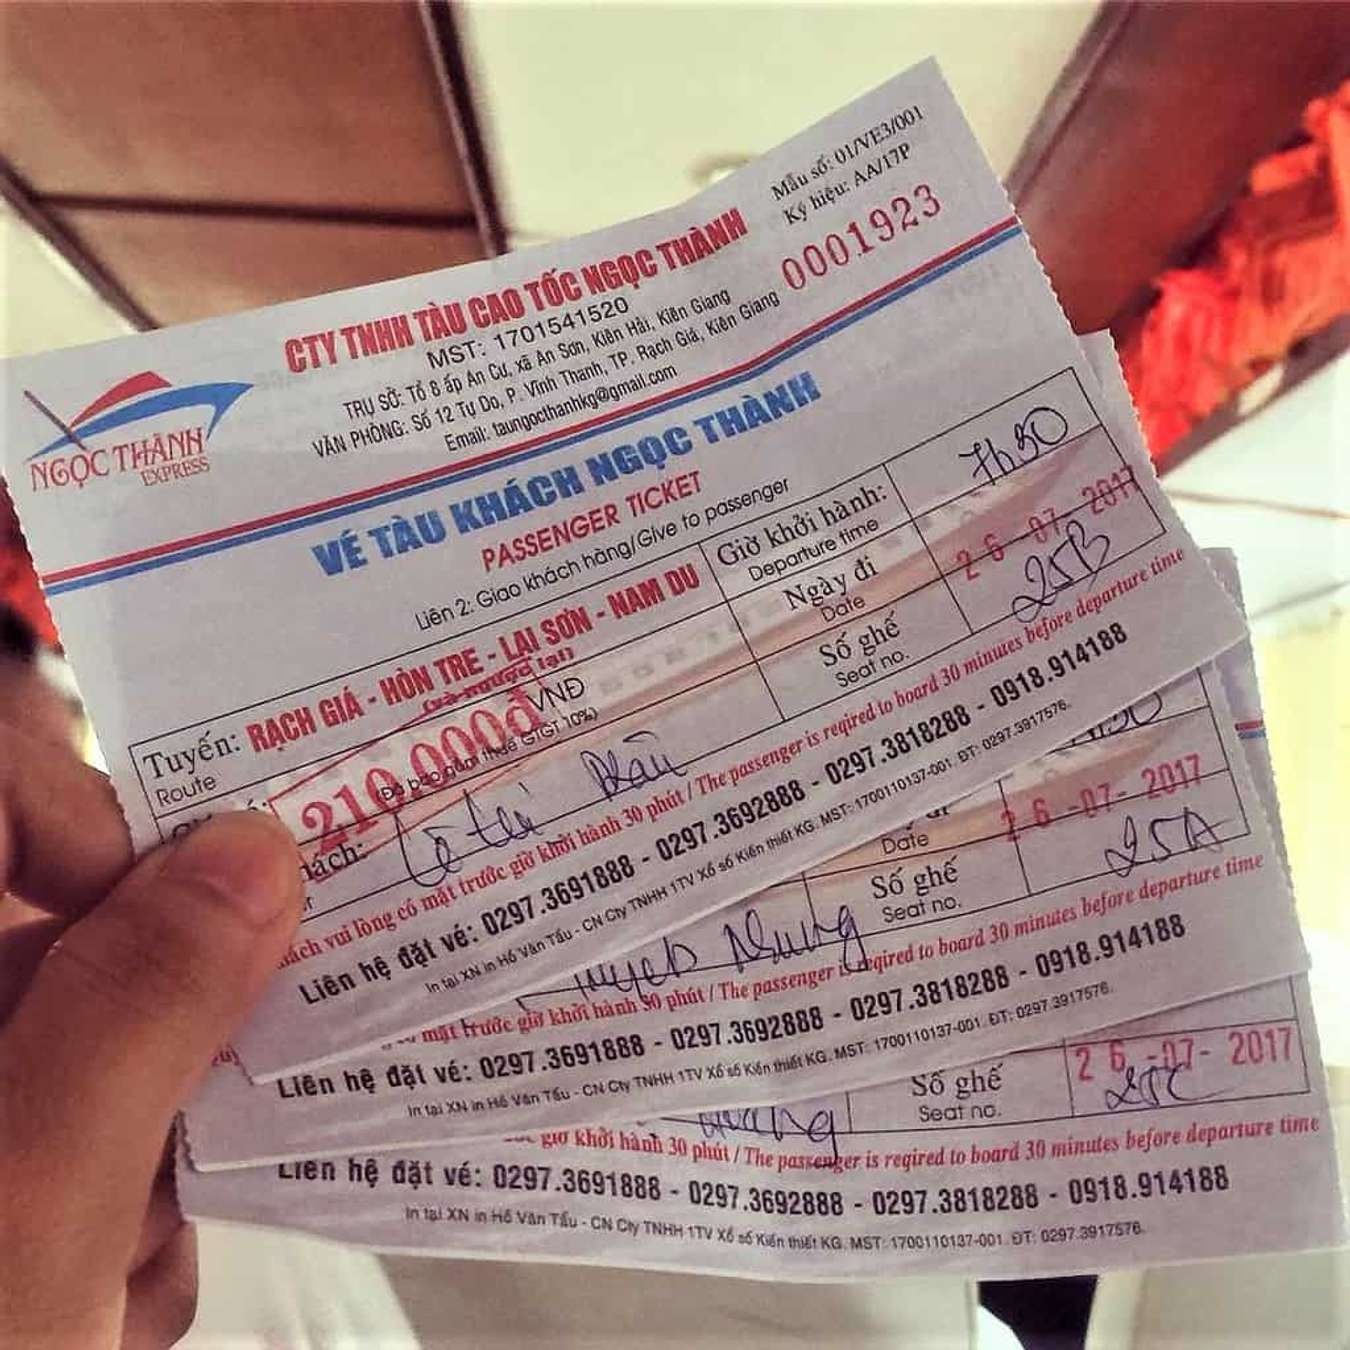 NGỌC THÀNH
EXPRESS
CTY TNHH TÀU CAO TỐC NGỌC THÀNH
MST: 1701541520
TRỤ SỞ: Tổ 8 ấp An Cư, xã An Sơn, Kiên Hải, Kiên Giang
VĂN PHÒNG: Số 12 Tự Do, P. Vĩnh Thanh, TP. Rạch Giá, Kiên Giang
Email: taungocthanhkg@gmail.com
Mẫu số: 01/VE3/001
Ký hiệu: AA/17P
0001923
VÉ TÀU KHÁCH NGỌC THÀNH
PASSENGER TICKET
Liên 2: Giao khách hàng/Give to passenger
Tuyến: RẠCH GIÁ - HÒN TRE - LẠI SƠN - NAM DU
Route
(và ngược lại)
210.000đ VNĐ
(Đã bao gồm thuế GTGT 10%)
Giờ khởi hành: 7h50
Departure time
Ngày đi 26-07-2017
Date
Số ghế 25B
Seat no.
hách: Lê thị
ách vui lòng có mặt trước giờ khởi hành 30 phút / The passenger is reqired to board 30 minutes before departure time
Liên hệ đặt vé: 0297.3691888 - 0297.3692888 - 0297.3818288 - 0918.914188
In tại XN in Hồ Văn Tẩu - CN Cty TNHH 1TV Xổ số Kiến thiết KG. MST: 1700110137-001. ĐT: 0297.3917576.
26-07-2017
Date
Số ghế 25A
Seat no.
Nhung
mặt trước giờ khởi hành 30 phút / The passenger is reqired to board 30 minutes before departure time
Liên hệ đặt vé: 0297.3691888 - 0297.3692888 - 0297.3818288 - 0918.914188
In tại XN in Hồ Văn Tẩu - CN Cty TNHH 1TV Xổ số Kiến thiết KG. MST: 1700110137-001. ĐT: 0297.3917576.
26-07-2017
Số ghế 25C
Seat no.
giờ khởi hành 30 phút / The passenger is reqired to board 30 minutes before departure time
Liên hệ đặt vé: 0297.3691888 - 0297.3692888 - 0297.3818288 - 0918.914188
In tại XN in Hồ Văn Tẩu - CN Cty TNHH 1TV Xổ số Kiến thiết KG. MST: 1700110137-001. ĐT: 0297.3917576.